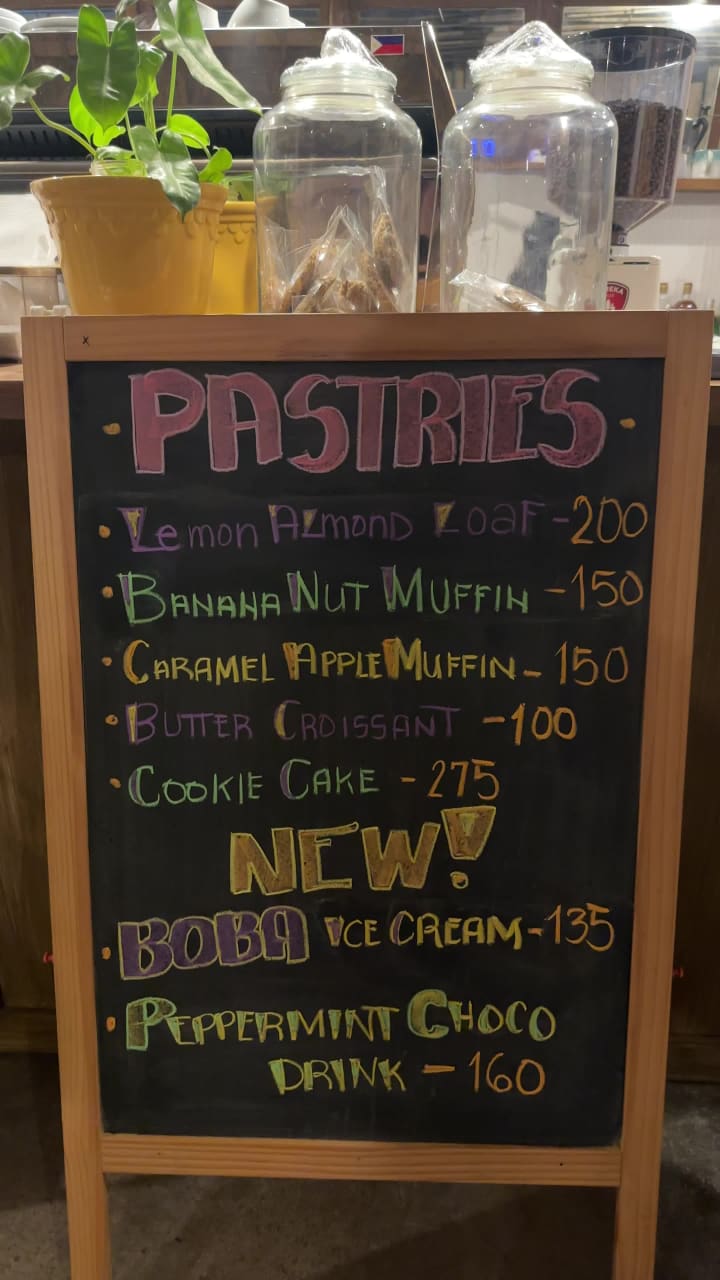 x
PASTRIES
• Lemon Almond Loaf - 200
• BANANA NUT MUFFIN - 150
• CARAMEL APPLE MUFFIN - 150
• BUTTER CROISSANT - 100
• COOKIE CAKE - 275
NEW!
• BOBA ICE CREAM - 135
• PEPPERMINT CHOCO
DRINK - 160